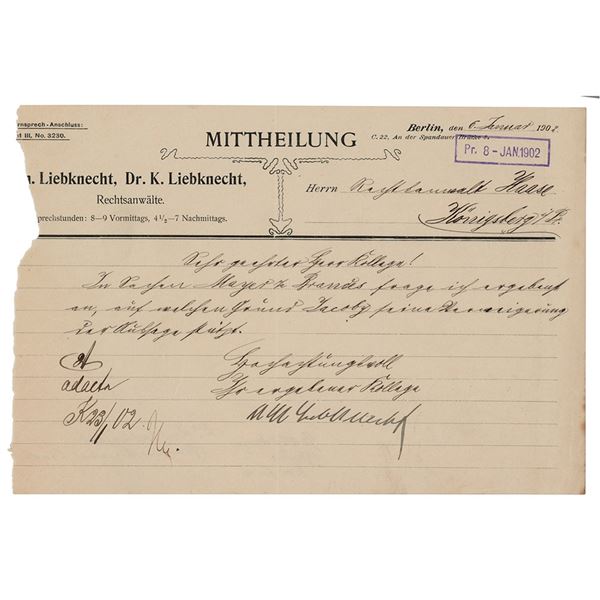 rnsprech-Anschluss:
t III, No. 3230.
MITTHEILUNG
Berlin, den 6. Januar 1902.
C. 22, An der Spandauer Brücke
Pr. 8-JAN.1902
h. Liebknecht, Dr. K. Liebknecht,
Rechtsanwälte.
prechstunden: 8—9 Vormittags, 4½—7 Nachmittags.
Herrn Rechtsanwalt Haase
Königsberg i/Pr.
Sehr geehrter Herr Kollege!
In Sachen Mayer Brandes frage ich ergebenst
an, auf welchen Grund Jacoby seine Verweigerung
der stützt.
Hochachtungsvoll
Ihr ergebener Kollege
Liebknecht
ad acta
K 23/1 02.